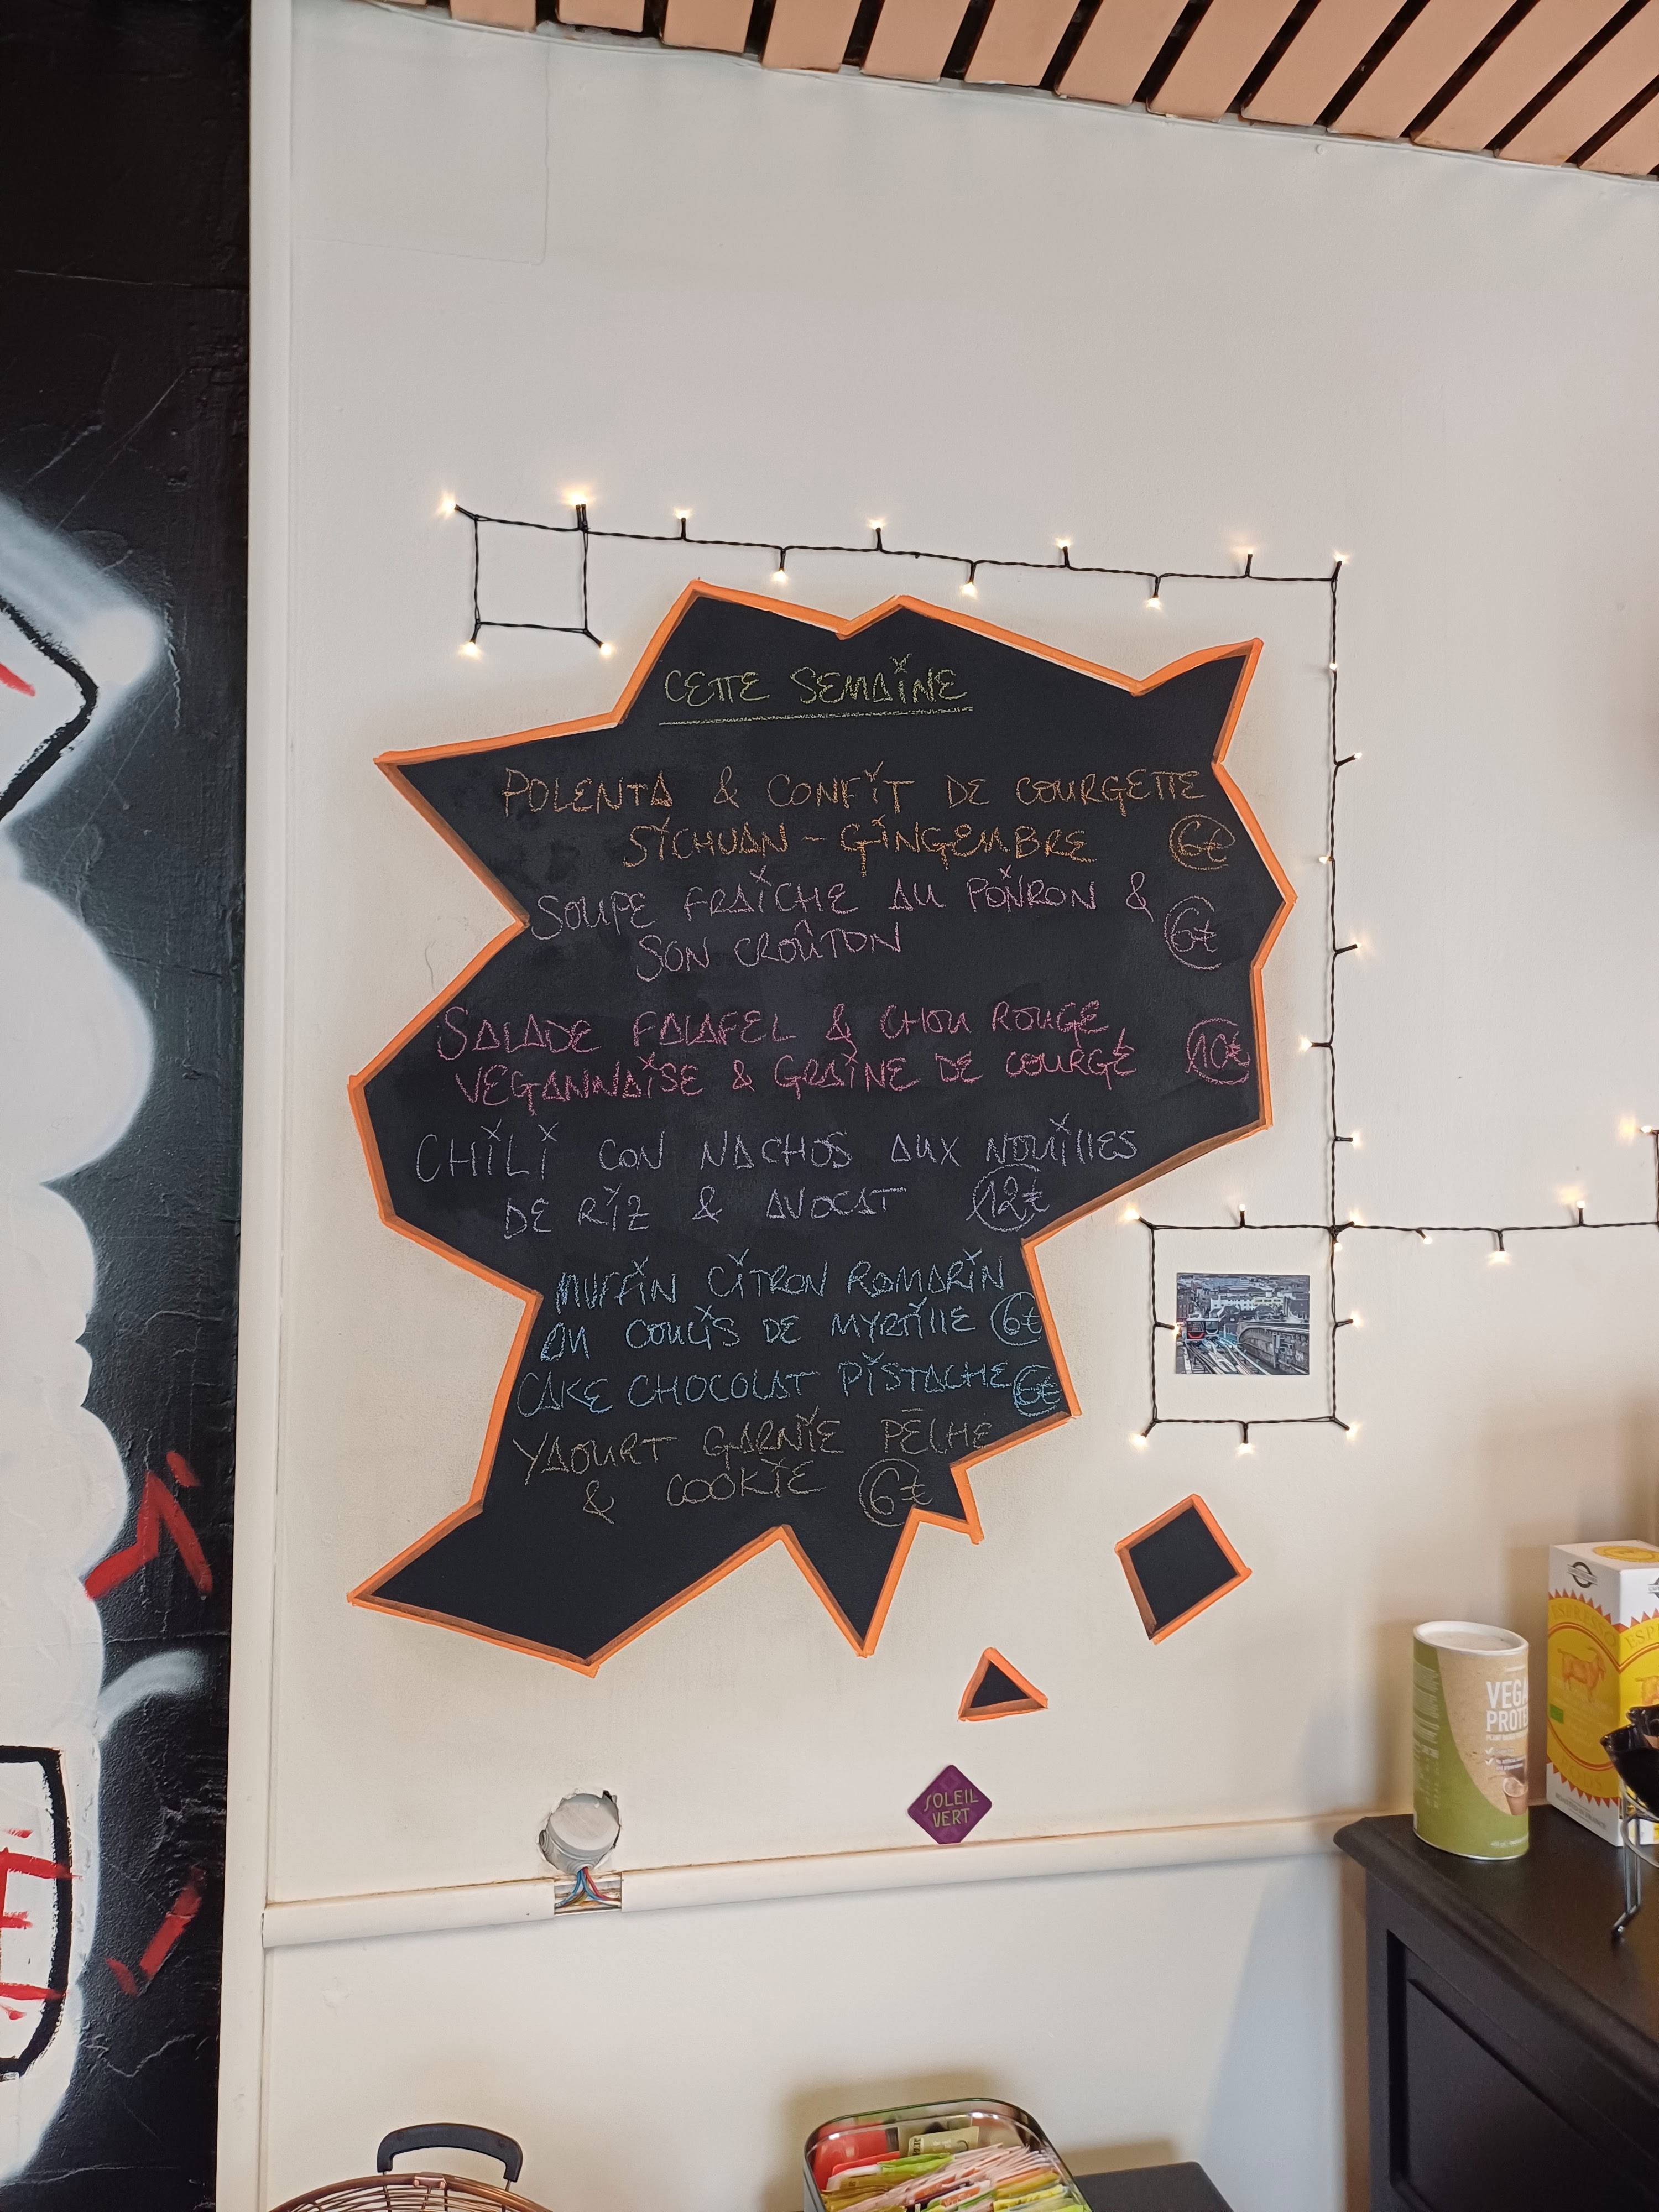 CETTE SEMAINE
POLENTA & CONFIT DE COURGETTE
SICHUAN - GINGEMBRE 6€
SOUPE FRAÎCHE AU POIVRON &
SON CROÛTON 6€
SALADE FALAFEL & CHOU ROUGE,
VEGANNAISE & GRAINE DE COURGE 10€
CHILI CON NACHOS AUX NOUILLES
DE RIZ & AVOCAT 12€
MUFFIN CITRON ROMARIN
AU COULIS DE MYRTILLE 6€
CAKE CHOCOLAT PISTACHE 6€
YAOURT GARNIE PÊCHE
& COOKIE 6€
SOLEIL
VERT
VEGA
PROTE
ESPRESSO